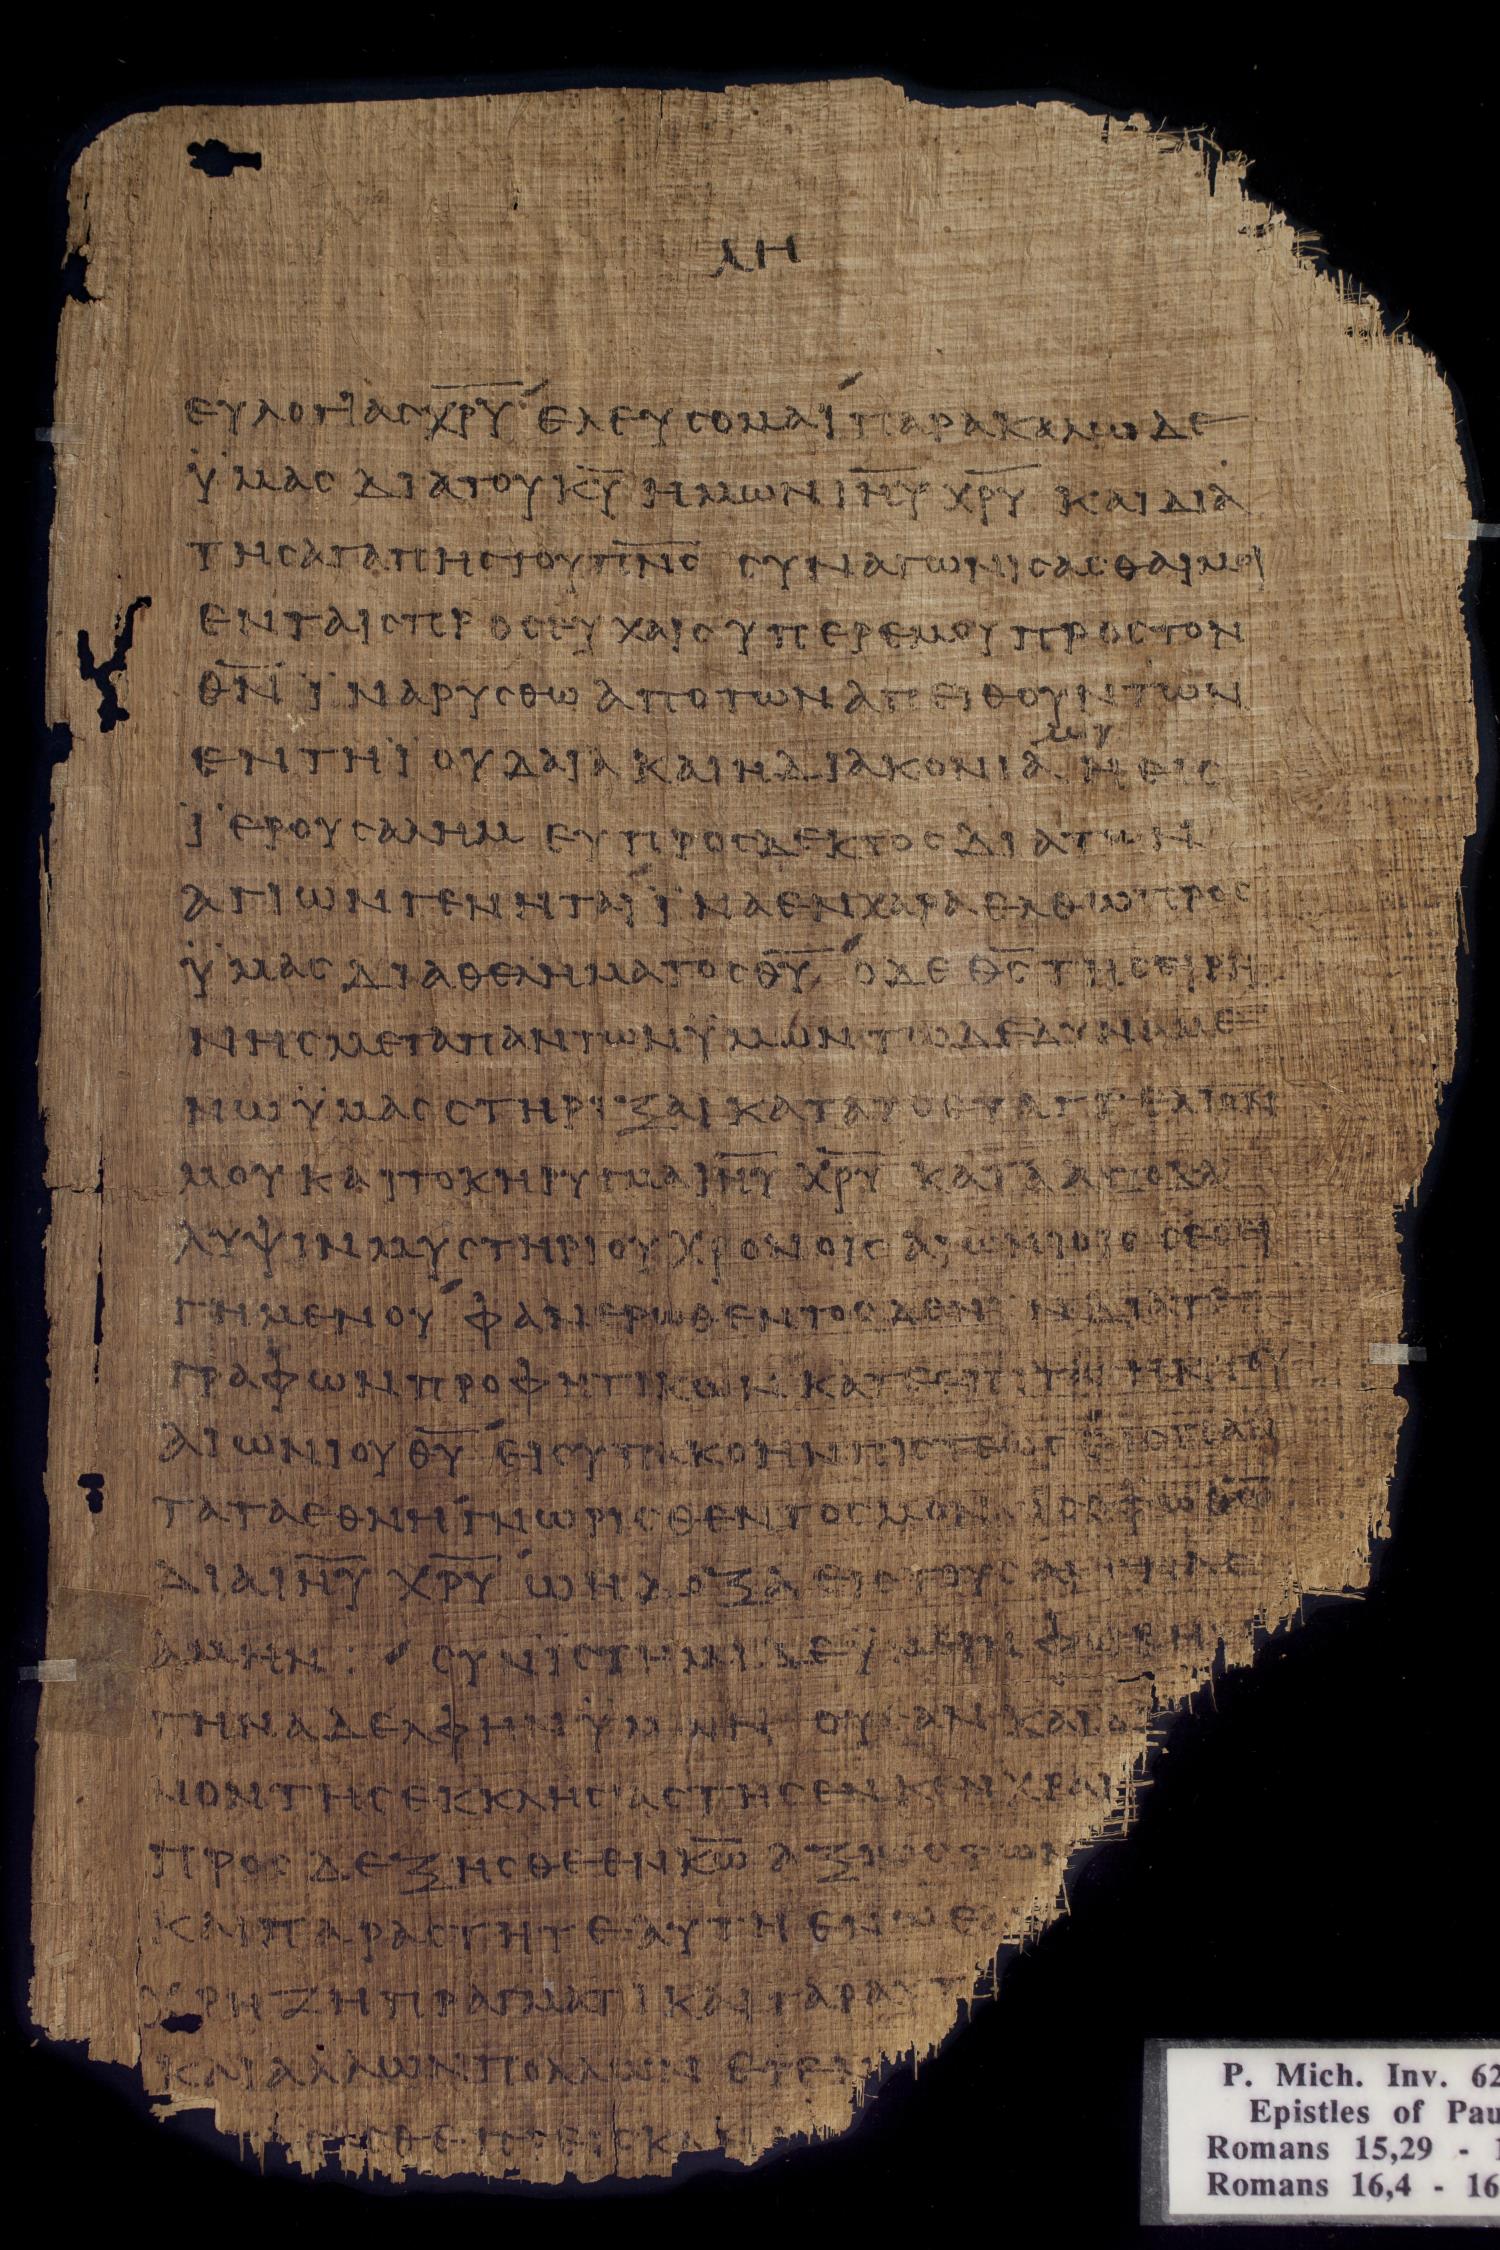 λη
ευλογιας χρυ ελευσομαι παρακαλω δε
ϋμας δια του κυ ημων ιηυ χρυ και δια
της αγαπης του πνς συναγωνισασθαι μοι
εν ταις προσευχαις υπερ εμου προς τον
θν ϊνα ρυσθω απο των απειθουντων
εν τη ϊουδαια και η διακονια μου η εις
ϊερουσαλημ ευπροσδεκτος δια των
αγιων γενηται ϊνα εν χαρα ελθω προς
ϋμας δια θεληματος θυ ο δε θς της ειρη
νης μετα παντων ϋμων τω δε δυναμε
νω ϋμας στηριξαι κατα το ευαγγελιον
μου και το κηρυγμα ιηυ χρυ κατα αποκα
λυψιν μυστηριου χρονοις αιωνιοις σεσει
γημενου φανερωθεντος δε νυν δια τε
γραφων προφητικων κατ επιταγην του
αιωνιου θυ εις υπακοην πιστεως εις παν
τα τα εθνη γνωρισθεντος μονω σοφω θω
δια ιηυ χρυ ω η δοξα εις τους αιωνας
αμην : συνϊστημι δε ϋμειν φοιβην
την αδελφην ϋμων ουσαν και δι
νον της εκκλησιας της εν κενχραι
προσδεξησθε εν κω αξιως των
και παραστητε αυτη εν ω εαν
χρηζη πραγματι και γαρ αυτ
και αλλων πολλων εγεν